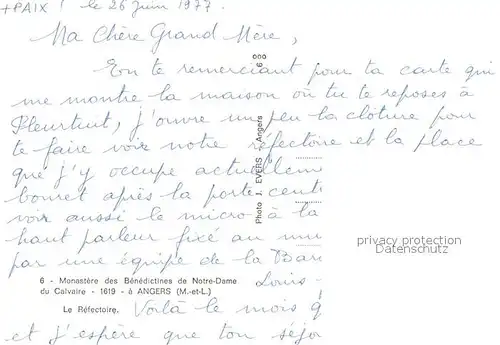 +PAIX! le 26 Juin 1977.
Ma Chère Grand Mère,
En te remerciant pour ta carte qui
me montre la maison où tu te reposes à
Pleurtuit, j'ouvre un peu la clôture pour
te faire voir notre réfectoire et la place
que j'y occupe actuellem
bonnet après la porte cent
voir aussi le micro à la
haut parleur fixé au mu
par une équipe de la Bar
Louis-
Voilà le mois q
et j'espère que ton séjo
6 - Monastère des Bénédictines de Notre-Dame
du Calvaire - 1619 - à ANGERS (M.-et-L.)
Le Réfectoire.
Photo J. EVERS Angers 6 000
privacy protection
Datenschutz